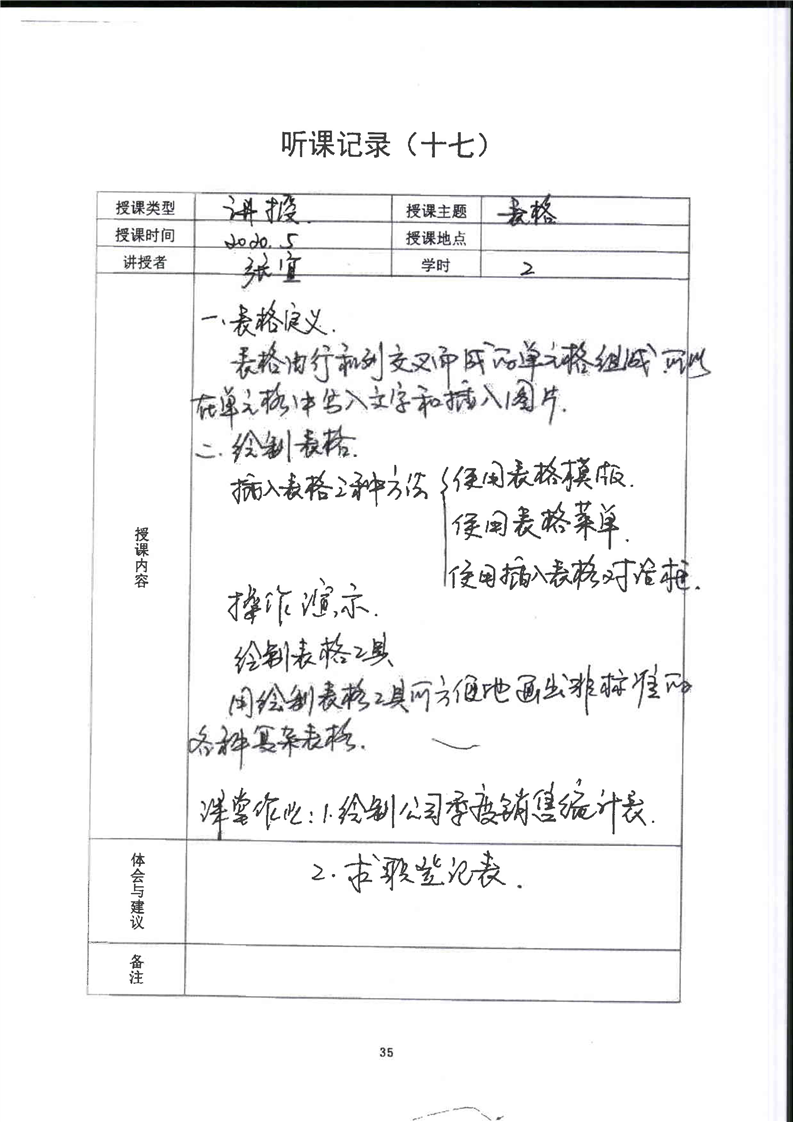 听课记录（十七）
授课类型 讲授. 授课主题 表格
授课时间 2020.5 授课地点
讲授者 张宜 学时 2
授课内容
一、表格定义.
表格由行和列交叉而成的单元格组成,可以
在单元格中写入文字和插入图片.
二.绘制表格.
插入表格3种方法 { 使用表格模版.
使用表格菜单.
使用插入表格对话框.
操作演示.
绘制表格工具
用绘制表格工具可方便地画出非标准的
各种复杂表格.
课堂作业:1.绘制公司季度销售统计表.
体会与建议
2.求职登记表.
备注
35